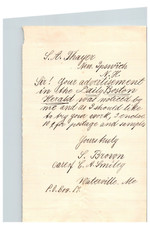 S. A. Thayer
New Ipswich
N.H.
Sir! Your advertisement
in the Daily Boston
Herald was noticed by
me and as I should like
to try your work, I enclose
10¢ for postage and sample
Yours truly
S. Brown
care of E. A. Smiley
Waterville, Me
P.O. Box. 17.